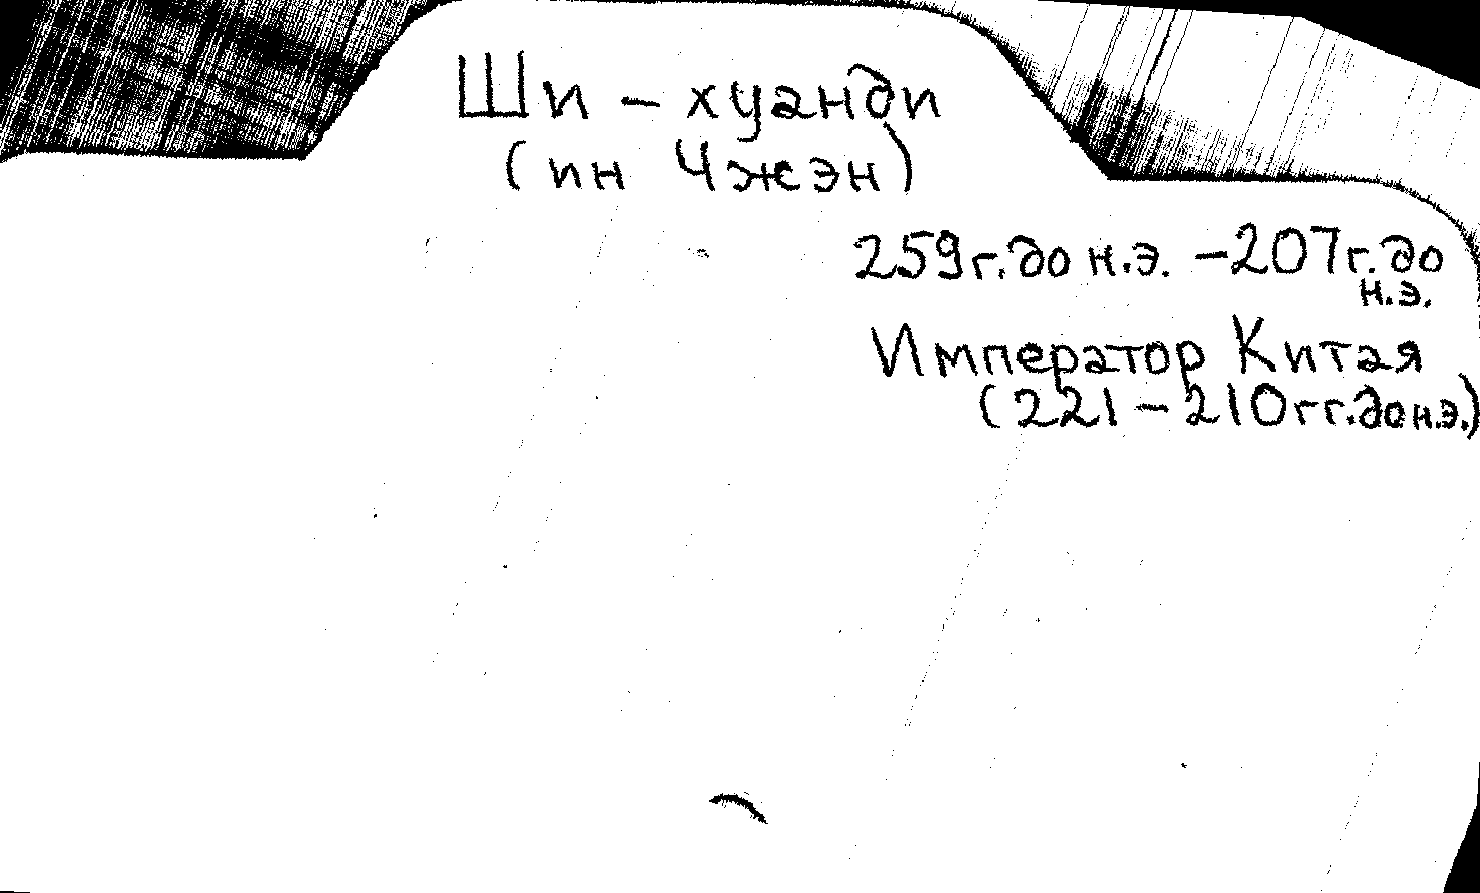 Ши - хуанди
(ин Чжэн)
259г. до н.э. - 207г. до
н.э.
Император Китая
(221 - 210 гг. до н.э.)